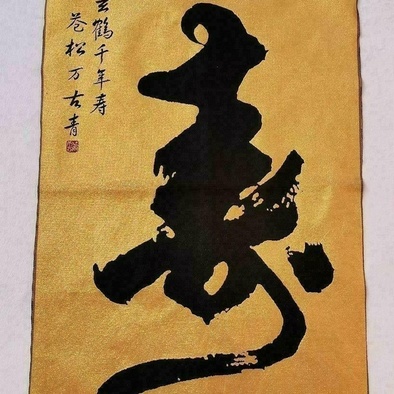 寿
玄鹤千年寿
苍松万古青